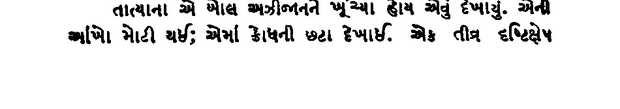 તાત્યાના એ બોલ અઝીજનને ખૂંચ્યા હોય એવું દેખાયું. એની
આંખો મોટી થઈ; એમાં ક્રોધની છટા દેખાઈ. એક તીવ્ર દષ્ટિક્ષેપ